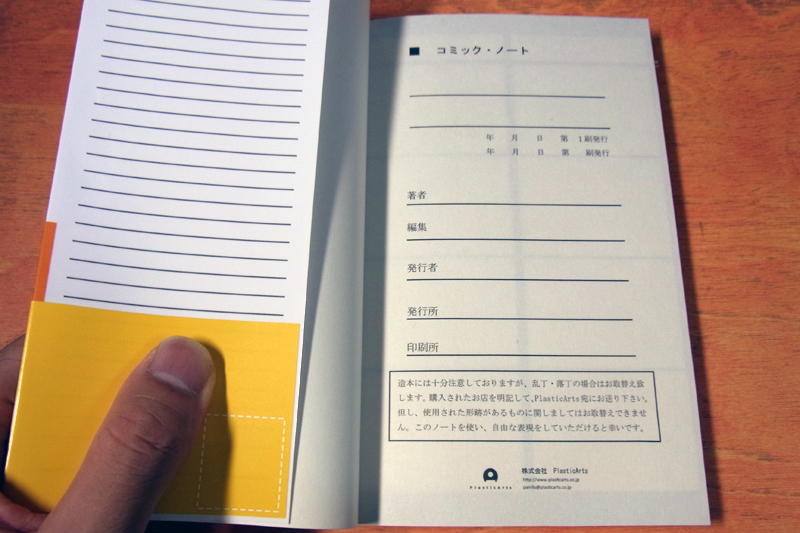 ■ コミック・ノート
年 月 日 第 1刷発行
年 月 日 第 刷発行
著者
編集
発行者
発行所
印刷所
造本には十分注意しておりますが、乱丁・落丁の場合はお取替え致
します。購入されたお店を明記して、PlasticArts宛にお送り下さい。
但し、使用された形跡があるものに関しましてはお取替えできませ
ん。このノートを使い、自由な表現をしていただけると幸いです。
PlasticArts
株式会社 PlasticArts
http://www.plasticarts.co.jp